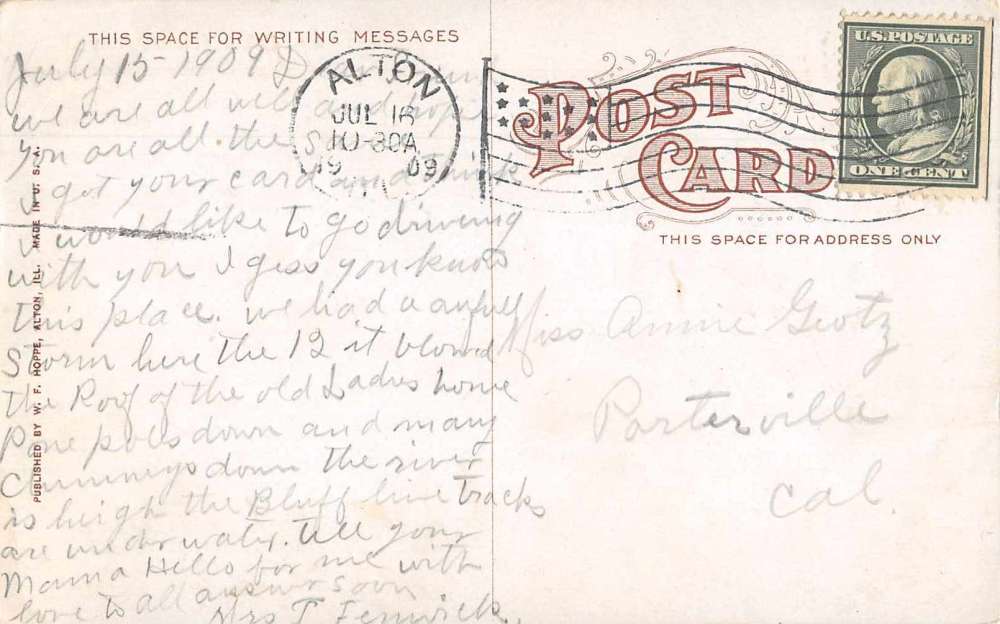 THIS SPACE FOR WRITING MESSAGES
July 15-1909
we are all well and hope
you are all the Same
I got your card and think
I would like to go driving
with you I gess you know
this place. we had a awfull
Storm here the 12 it blowed
the Roof of the old Ladies home
Pone poles down and many
Chimneys down the river
is heigh the Bluff line tracks
are under water. tell your
Mama Hello for me with
love to all answr soon
Mrs T Fenwick.
PUBLISHED BY W. F. HOPPE, ALTON, ILL. MADE IN U. S. A.
ALTON
JUL 16
10-30A
1909
POST CARD
U.S. POSTAGE
ONE CENT
THIS SPACE FOR ADDRESS ONLY
Miss Annie Geotz
Porterville
Cal.